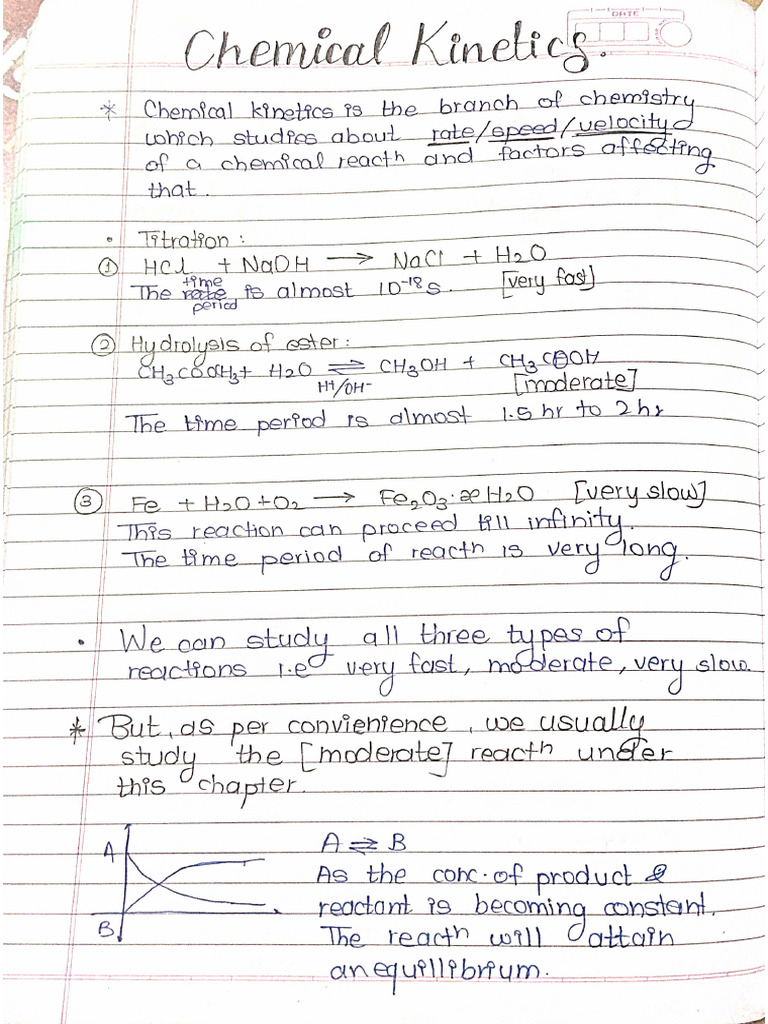 DATE
Chemical Kinetics.
* Chemical kinetics is the branch of chemistry
which studies about rate/speed/velocity
of a chemical reactn and factors affecting
that.
• Titration:
① HCl + NaOH ⟶ NaCl + H2O
The time period is almost 10⁻¹⁸s. [very fast]
② Hydrolysis of ester:
CH3COOCH3 + H2O ⇌ CH3OH + CH3COOH
H+/OH- [moderate]
The time period is almost 1.5 hr to 2 hr
③ Fe + H2O + O2 ⟶ Fe2O3·xH2O [very slow]
This reaction can proceed till infinity.
The time period of reactn is very long.
• We can study all three types of
reactions i.e very fast, moderate, very slow.
* But, as per convienience, we usually
study the [moderate] reactn under
this chapter.
A
B
A ⇌ B
As the conc. of product &
reactant is becoming constant.
The reactn will attain
an equillibrium.